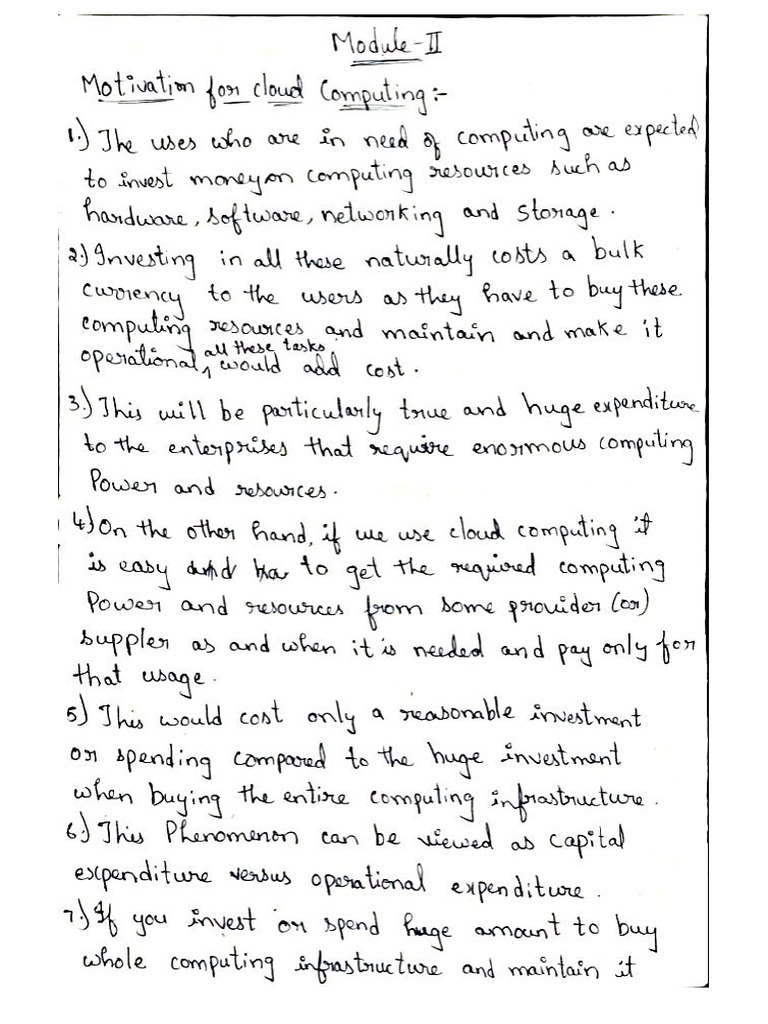 Module-II
Motivation for cloud Computing:-
1.) The uses who are in need of computing are expected
to invest money on computing resources such as
hardware, software, networking and storage.
2.) Investing in all these naturally costs a bulk
currency to the users as they have to buy these
computing resources and maintain and make it
all these tasks
operational, would add cost.
3.) This will be particularly true and huge expenditure
to the enterprises that require enormous computing
Power and resources.
4.) On the other hand, if we use cloud computing it
is easy to get the required computing
Power and resources from some provider (or)
suppler as and when it is needed and pay only for
that usage.
5.) This would cost only a reasonable investment
or spending compared to the huge investment
when buying the entire computing infrastructure.
6.) This Phenomenon can be viewed as capital
expenditure versus operational expenditure.
7.) If you invest or spend huge amount to buy
whole computing infrastructure and maintain it